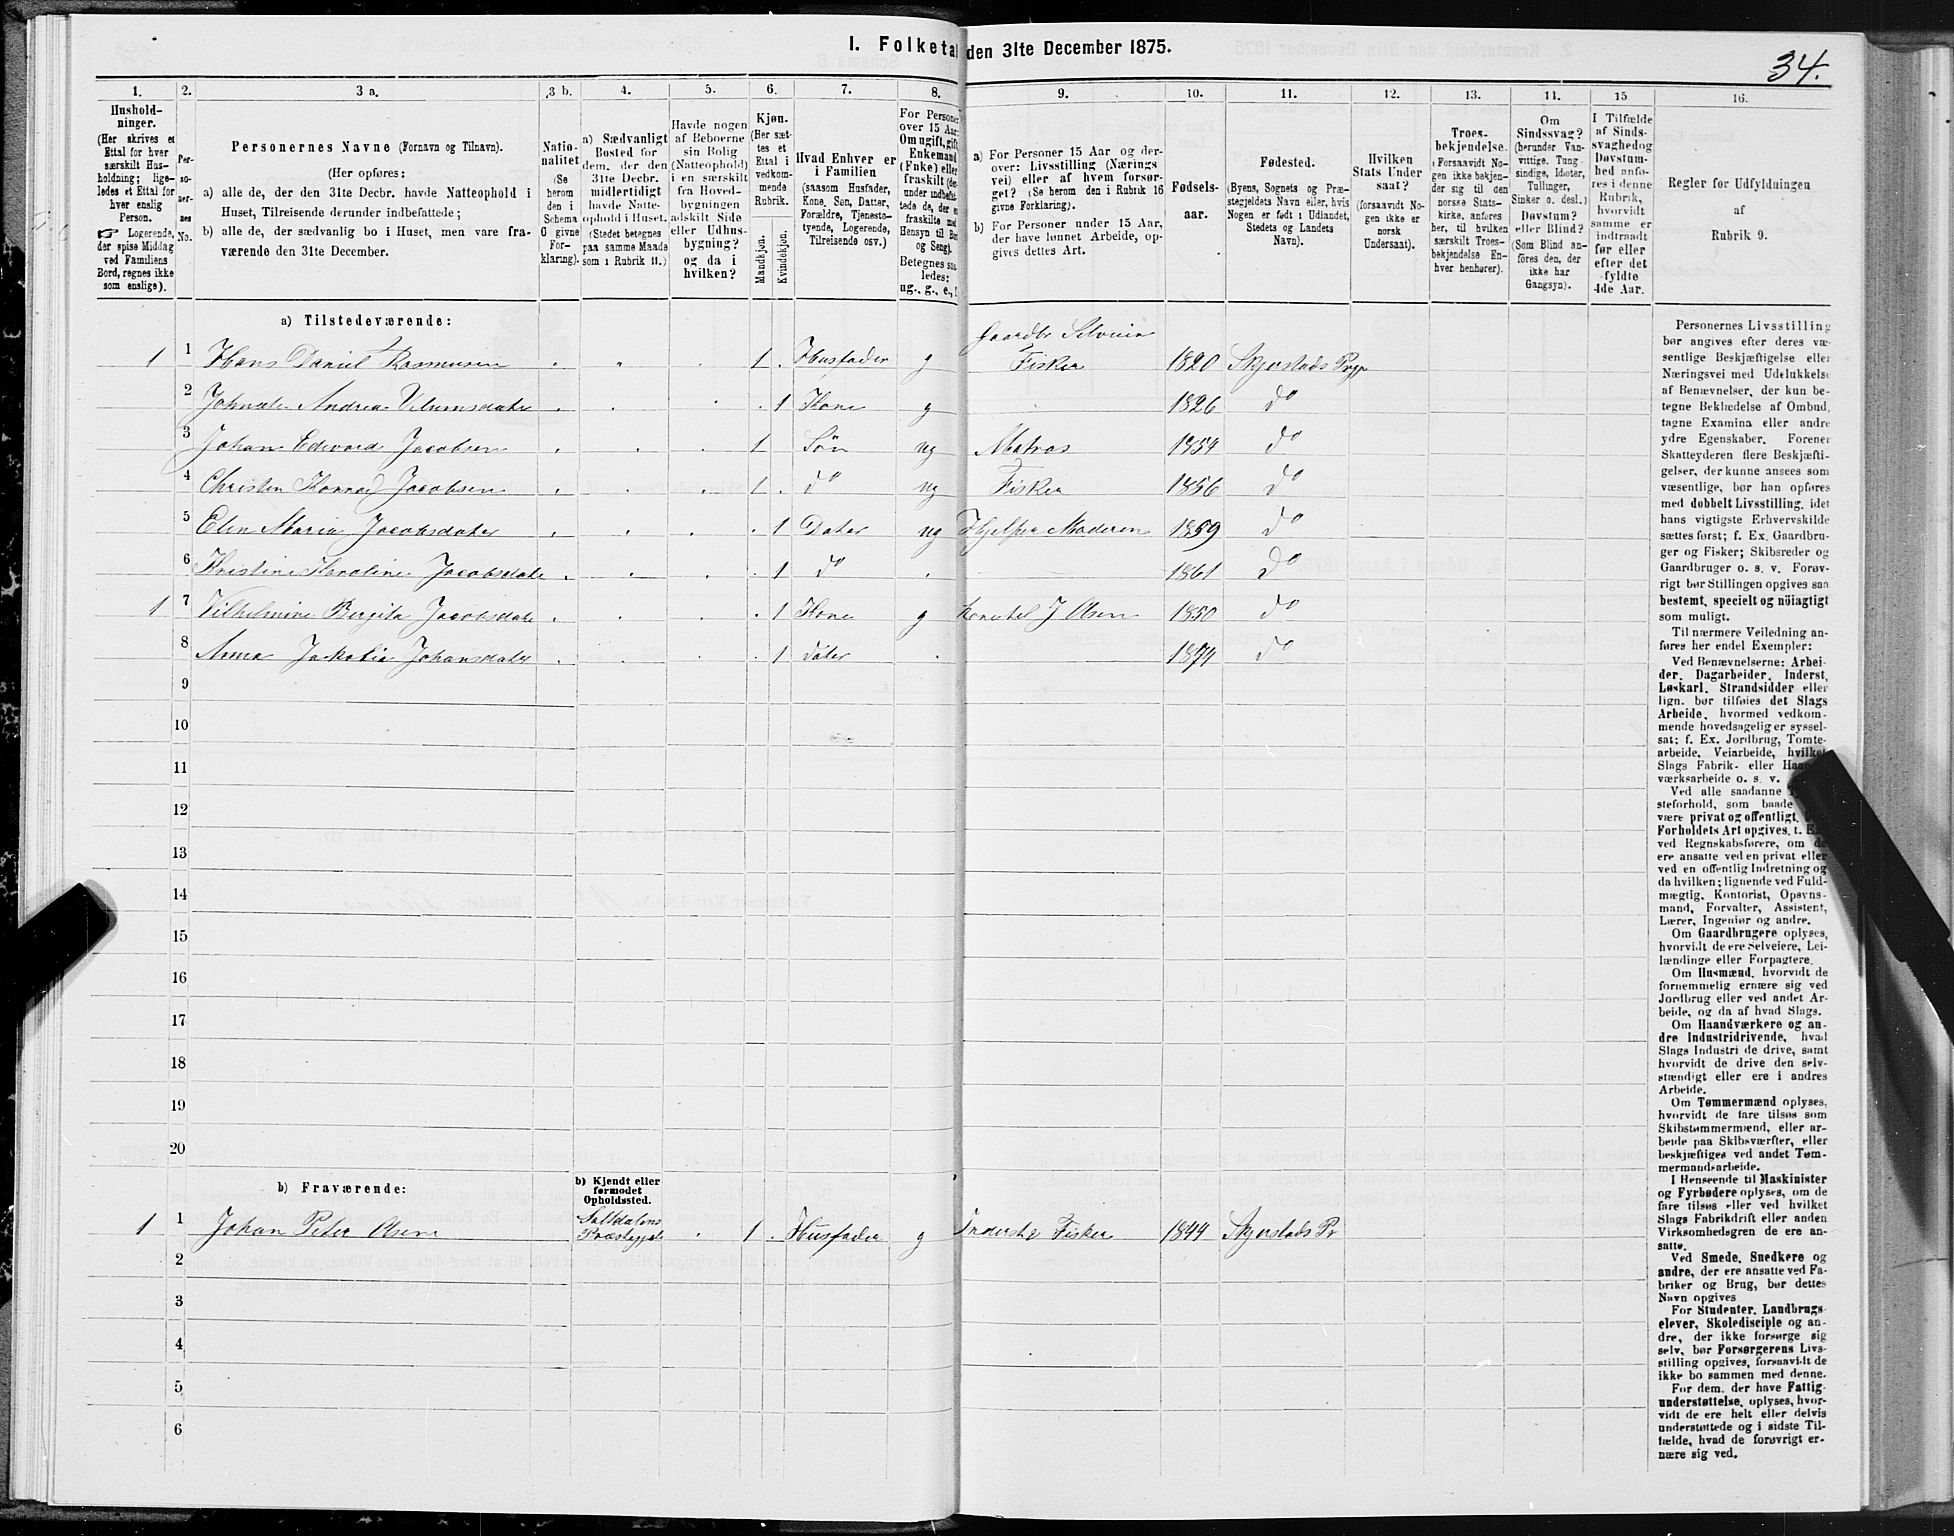 I. Folketal den 31te December 1875.
34.
1.
Hushold-
ninger.
(Her skrives et
Ettal for hver
særskilt Hus-
holdning; lige-
ledes et Ettal for
hver enslig
Person.
☞ Logerende,
der spise Middag
ved Familiens
Bord, regnes ikke
som enslige).
2.
Per-
so-
ner-
nes
No.
3 a.
Personernes Navne (Fornavn og Tilnavn).
(Her opføres:
a) alle de, der den 31te Decbr. havde Natteophold i
Huset, Tilreisende derunder indbefattede;
b) alle de, der sædvanlig bo i Huset, men vare fra-
værende den 31te December.
3 b.
Natio-
nalitet
(Se
herom
den i
Schema
C givne
For-
klaring).
4.
a) Sædvanligt
Bosted for
dem, der den
31te Decbr.
midlertidigt
havde Natte-
ophold i Huset.
(Stedet betegnes
paa samme Maade
som i Rubrik 11.)
5.
Havde nogen
af Beboerne
sin Bolig
(Natteophold)
i en særskilt
fra Hoved-
bygningen
adskilt Side
eller Udhus-
bygning?
og da i
hvilken?
6.
Kjøn.
(Her sæt-
tes et
Ettal i
vedkom-
mende
Rubrik.
Mandkjøn.
Kvindekjøn.
7.
Hvad Enhver er
i Familien
(saasom Husfader,
Kone, Søn, Datter,
Forældre, Tjeneste-
tyende, Logerende,
Tilreisende osv.)
8.
For Personer
over 15 Aar:
Om ugift, gift,
Enkemand
(Enke) eller
fraskilt (der-
under indbefat-
tede de, der er
fraskilte med
Hensyn til Bord
og Seng).
Betegnes saa-
ledes:
ug., g., e., f.
9.
a) For Personer 15 Aar og der-
over: Livsstilling (Nærings
vei) eller af hvem forsør-
get? (Se herom den i Rubrik 16
givne Forklaring).
b) For Personer under 15 Aar,
der have lønnet Arbeide, op-
gives dettes Art.
10.
Fødsels-
aar.
11.
Fødested.
(Byens, Sognets og Præ-
stegjeldets Navn eller, hvis
Nogen er født i Udlandet,
Stedets og Landets
Navn).
12.
Hvilken
Stats Under
saat?
(forsaavidt No-
gen ikke er
norsk
Undersaat).
13.
Troes-
bekjendelse.
(Forsaavidt No-
gen ikke bekjen-
der sig til den
norske Stats-
kirke, anføres
her, til hvilken
særskilt Troes-
bekjendelse En-
hver henhører).
14.
Om
Sindssvag?
(herunder Van-
vittige, Tung-
sindige, Idioter,
Tullinger,
Sinker o. desl.)
Døvstum?
eller Blind?
(Som Blind an-
føres den, der
ikke har
Gangsyn).
15
I Tilfælde
af Sinds-
svaghed og
Døvstum-
hed anfø-
res i denne
Rubrik,
hvorvidt
samme er
indtraadt
før eller
efter det
fyldte
4de Aar.
16.
Regler for Udfyldningen
af
Rubrik 9.
a) Tilstedeværende:
1 1 Hans Daniel Rasmusen 1 Husfader g Gaardbr Selveier Fisker 1820 Skjerstads Prgp
2 Johnate Andrea Vilumsdater 1 Kone g 1826 do
3 Johan Edevard Jacobsen 1 Søn ug Matros 1854 do
4 Christen Konrad Jacobsen 1 do ug Fisker 1856 do
5 Elen Maria Jacobsdater 1 Dater ug Hjelper Moderen 1859 do
6 Kristine Karoline Jacobsdate 1 do 1861 do
1 7 Vilhelmine Bergita Jacobsdate 1 Kone g Kone til J Olsen 1850 do
8 Anna Jakobia Johansdater 1 dater 1874 do
9
10
11
12
13
14
15
16
17
18
19
20
b) Fraværende:
b) Kjendt eller
formodet
Opholdssted.
1 1 Johan Peter Olsen Saltdalens Præstegjeld 1 Husfader g Inderst & Fisker 1844 Skjerstads Pr
2
3
4
5
6
Personernes Livsstilling
bør angives efter deres væ-
sentlige Beskjæftigelse eller
Næringsvei med Udelukkelse
af Benævnelser, der kun be-
tegne Beklædelse af Ombud,
tagne Examina eller andre
ydre Egenskaber. Forener
Skatteyderen flere Beskjæfti-
gelser, der kunne ansees som
væsentlige, bør han opføres
med dobbelt Livsstilling, idet
hans vigtigste Erhvervskilde
sættes først; f. Ex. Gaardbru-
ger og Fisker; Skibsreder og
Gaardbruger o. s. v. Forøv-
rigt bør Stillingen opgives saa
bestemt, specielt og nöiagtigt
som muligt.
Til nærmere Veiledning an-
føres her endel Exempler:
Ved Benævnelserne: Arbei-
der, Dagarbeider, Inderst,
Løskarl, Strandsidder eller
lign. bør tilføies det Slags
Arbeide, hvormed vedkom-
mende hovedsagelig er syssel-
sat; f. Ex. Jordbrug, Tomte-
arbeide, Veiarbeide, hvilket
Slags Fabrik- eller Haand-
værksarbeide o. s. v.
Ved alle saadanne
steforhold, som baade
være privat og offentligt,
Forholdets Art opgives, t. Ex.
ved Regnskabsførere, om de
ere ansatte ved en privat eller
ved en offentlig Indretning og
da hvilken; lignende ved Fuld-
mægtig, Kontorist, Opsyns-
mand, Forvalter, Assistent,
Lærer, Ingeniør og andre.
Om Gaardbrugere oplyses,
hvorvidt de ere Selveiere, Lei-
lændinge eller Forpagtere.
Om Husmænd, hvorvidt de
fornemmelig ernære sig ved
Jordbrug eller ved andet Ar-
beide, og da af hvad Slags.
Om Haandværkere og an-
dre Industridrivende, hvad
Slags Industri de drive, samt
hvorvidt de drive den selv-
stændigt eller ere i andres
Arbeide.
Om Tømmermænd oplyses,
hvorvidt de fare tilsøs som
Skibstømmermænd, eller ar-
beide paa Skibsværfter, eller
beskjæftiges ved andet Tøm-
mermandsarbeide.
I Henseende til Maskinister
og Fyrbødere oplyses, om de
fare tilsøs eller ved hvilket
Slags Fabrikdrift eller anden
Virksomhedsgren de ere an-
satte.
Ved Smede, Snedkere og
andre, der ere ansatte ved Fa-
briker og Brug, bør dettes
Navn opgives
For Studenter, Landbrugs-
elever, Skoledisciple og an-
dre, der ikke forsørge sig
selv, bør Forsørgerens Livs-
stilling opgives, forsaavidt de
ikke bo sammen med denne.
For dem, der have Fattig-
understøttelse, oplyses, hvor-
vidt de ere helt eller delvis
understøttede og i sidste Til-
fælde, hvad de forøvrigt er-
nære sig ved.